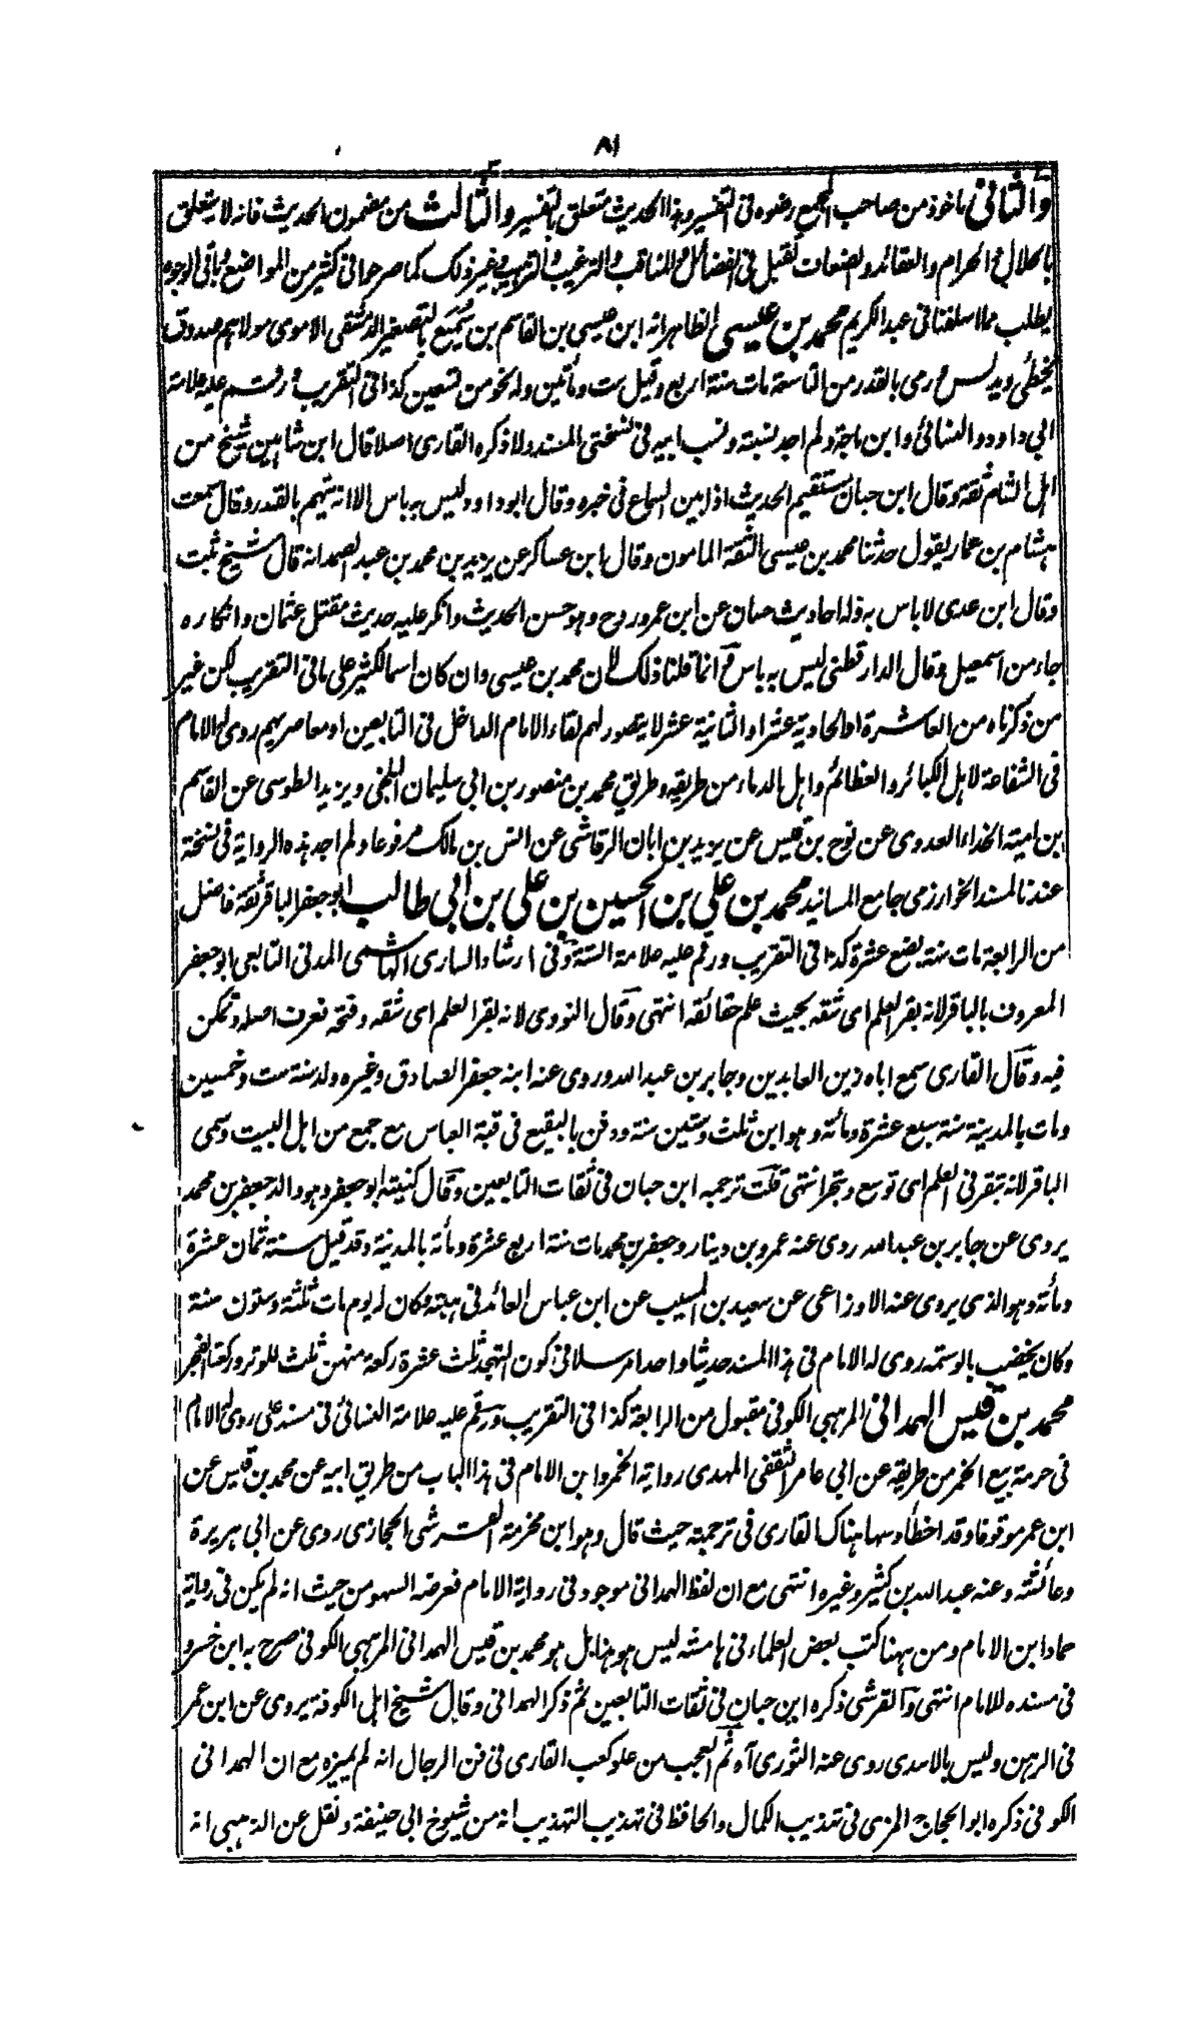 ٨١
والثاني ماخوذ من صاحب المجمع رضوه فى التفسير وهذا الحديث متعلق بالتفسير والثالث من مضمون الحديث فانه لا يتعلق
بالحلال والحرام والعقائد والضعاف تقبل فى الفضائل والمناقب والترغيب والترهيب وغير ذلك كما صرحوا فى كثير من المواضع وباقى الوجوه
يطلب مما اسلفنا فى عبد الكريم محمد بن عيسى الظاهر انه ابن عيسى بن القاسم بن سميع بالتصغير الدمشقى الاموى مولاهم صدوق
يخطئ ويدلس ورمى بالقدر من التاسعة مات سنة اربع وقيل ست ومأتين وله نحو من تسعين كذا فى التقريب ورقم عليه علامة
ابى داود والنسائى وابن ماجة ولم اجد نسبته ونسب ابيه فى نسختى المسند ولا ذكره القارى اصلا قال ابن شاهين شيخ من
اهل الشام ثقة وقال ابن حبان مستقيم الحديث اذا بين السماع فى خبره وقال ابو داود ليس به باس الا انه يتهم بالقدر وقال سمعت
هشام بن عمار يقول حدثنا محمد بن عيسى الثقة المامون وقال ابن عساكر عن يزيد بن محمد بن عبد الصمد انه قال شيخ ثبت
وقال ابن عدى لا باس به وله احاديث حسان عن ابن عمر وروح وهو حسن الحديث وانكر عليه حديث مقتل عثمان وانكاره
جاء من اسمعيل وقال الدارقطنى ليس به باس انما قلنا ذلك لان محمد بن عيسى وان كان اسما لكثير على ما فى التقريب لكن غير
من ذكرناه من العاشرة او الحادية عشر او الثانية عشر لا يتصور لهم لقاء الامام الداخل فى التابعين او معاصريهم روى له الامام
فى الشفاعة لاهل الكبائر والعظائم واهل الدماء من طريقه وطريق محمد بن منصور بن ابى سليمان البلخى ويزيد الطوسى عن القاسم
بن امية الحذاء العدوى عن نوح بن قيس عن يزيد بن ابان الرقاشى عن انس بن مالك مرفوعا ولم اجد هذه الرواية فى نسخة
عندنا لمسند الخوارزمى جامع المسانيد محمد بن على بن الحسين بن على بن ابى طالب ابو جعفر الباقر ثقة فاضل
من الرابعة مات سنة بضع عشرة كذا فى التقريب ورقم عليه علامة الستة وفى ارشاد السارى الهاشمى المدنى التابعى ابو جعفر
المعروف بالباقر لانه بقر العلم اى شقه بحيث علم حقائقه انتهى وقال النووى لانه بقر العلم اى شقه وفتحه فعرف اصله وتمكن
فيه وقال القارى سمع اباه زين العابدين وجابر بن عبد الله وروى عنه ابنه جعفر الصادق وغيره ولد سنة ست وخمسين
ومات بالمدينة سنة سبع عشرة ومأة وهو ابن ثلث وستين سنة ودفن بالبقيع فى قبة العباس مع جمع من اهل البيت وسمى
الباقر لانه تبقر فى العلم اى توسع وتبحر انتهى قلت ترجمه ابن حبان فى ثقات التابعين وقال كنيته ابو جعفر وهو والد جعفر بن محمد
يروى عن جابر بن عبد الله روى عنه عمرو بن دينار وجعفر بن محمد مات سنة اربع عشرة ومأة بالمدينة وقد قيل سنة ثمان عشرة
ومأة وهو الذى يروى عنه الاوزاعى عن سعيد بن المسيب عن ابن عباس العائد فى هبته وكان له يوم مات ثلثة وستون سنة
وكان يخضب بالوسمة روى له الامام فى هذا المسند حديثا واحدا مرسلا فى كون التهجد ثلث عشرة ركعة منهن ثلث للوتر وركعتا الفجر
محمد بن قيس الهمدانى المرهبى الكوفى مقبول من الرابعة كذا فى التقريب ورقم عليه علامة النسائى فى مسند على روى له الامام
فى حرمة بيع الخمر من طريقه عن ابى عامر الثقفى المهدى رواية الخمر وابن الامام فى هذا الباب من طريق ابيه عن محمد بن قيس عن
ابن عمر موقوفا وقد اخطأ وسها هناك القارى فى ترجمته حيث قال وهو ابن مخرمة القرشى الحجازى روى عن ابى هريرة
وعائشة وعنه عبد الله بن كثير وغيره انتهى مع ان لفظ الهمدانى موجود فى رواية الامام فعرضه السهو من حيث انه لم يكن فى رواية
حماد ابن الامام ومن ههنا كتب بعض العلماء فى هامشه ليس هو هذا بل هو محمد بن قيس الهمدانى المرهبى الكوفى صرح به ابن خسرو
فى مسنده للامام انتهى والقرشى ذكره ابن حبان فى ثقات التابعين ثم ذكر الهمدانى وقال شيخ اهل الكوفة يروى عن ابن عمر
فى الرهن وليس بالاسدى روى عنه الثورى آه ثم العجب من علو كعب القارى فى فن الرجال انه لم يميزه مع ان الهمدانى
الكوفى ذكره ابو الحجاج المزى فى تهذيب الكمال والحافظ فى تهذيب التهذيب انه من شيوخ ابى حنيفة ونقل عن الذهبى انه